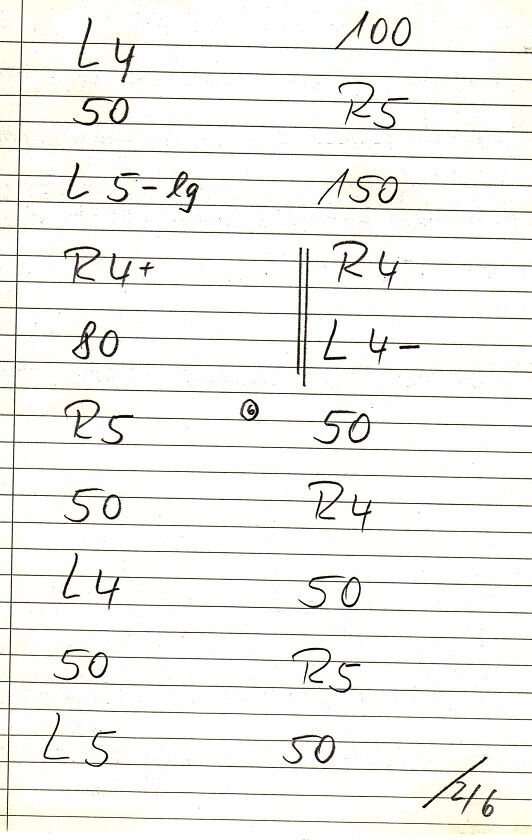 L4
50
L5-lg
R4+
80
R5
50
L4
50
L5
100
R5
150
R4
L4-
⑥ 50
R4
50
R5
50
/246